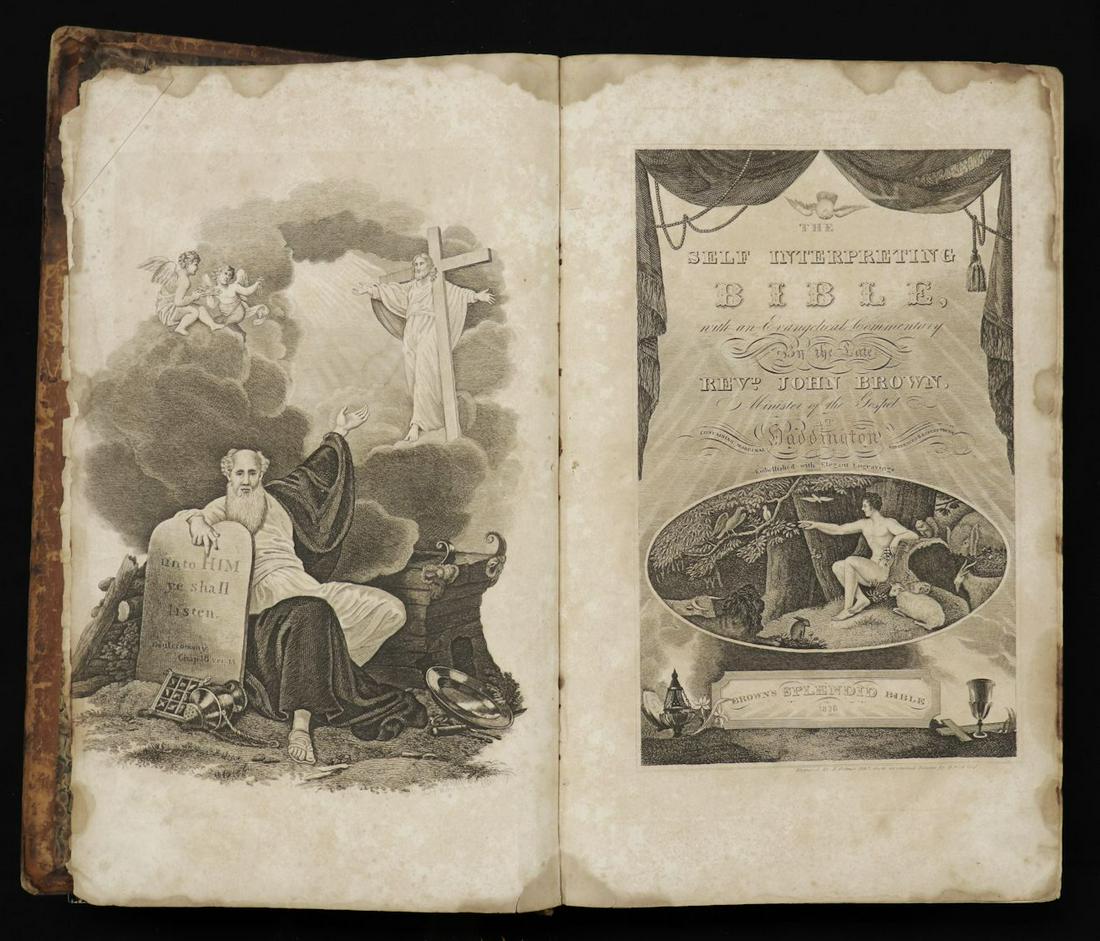 unto HIM
ye shall
listen.
Deuteronomy
Chap. 18 ver. 15
THE
SELF INTERPRETING
BIBLE,
with an Evangelical Commentary
By the Late
REVD. JOHN BROWN,
Minister of the Gospel
AT
Haddington
CONTAINING MARGINAL
Embellished with Elegant Engravings
BROWN'S SPLENDID BIBLE